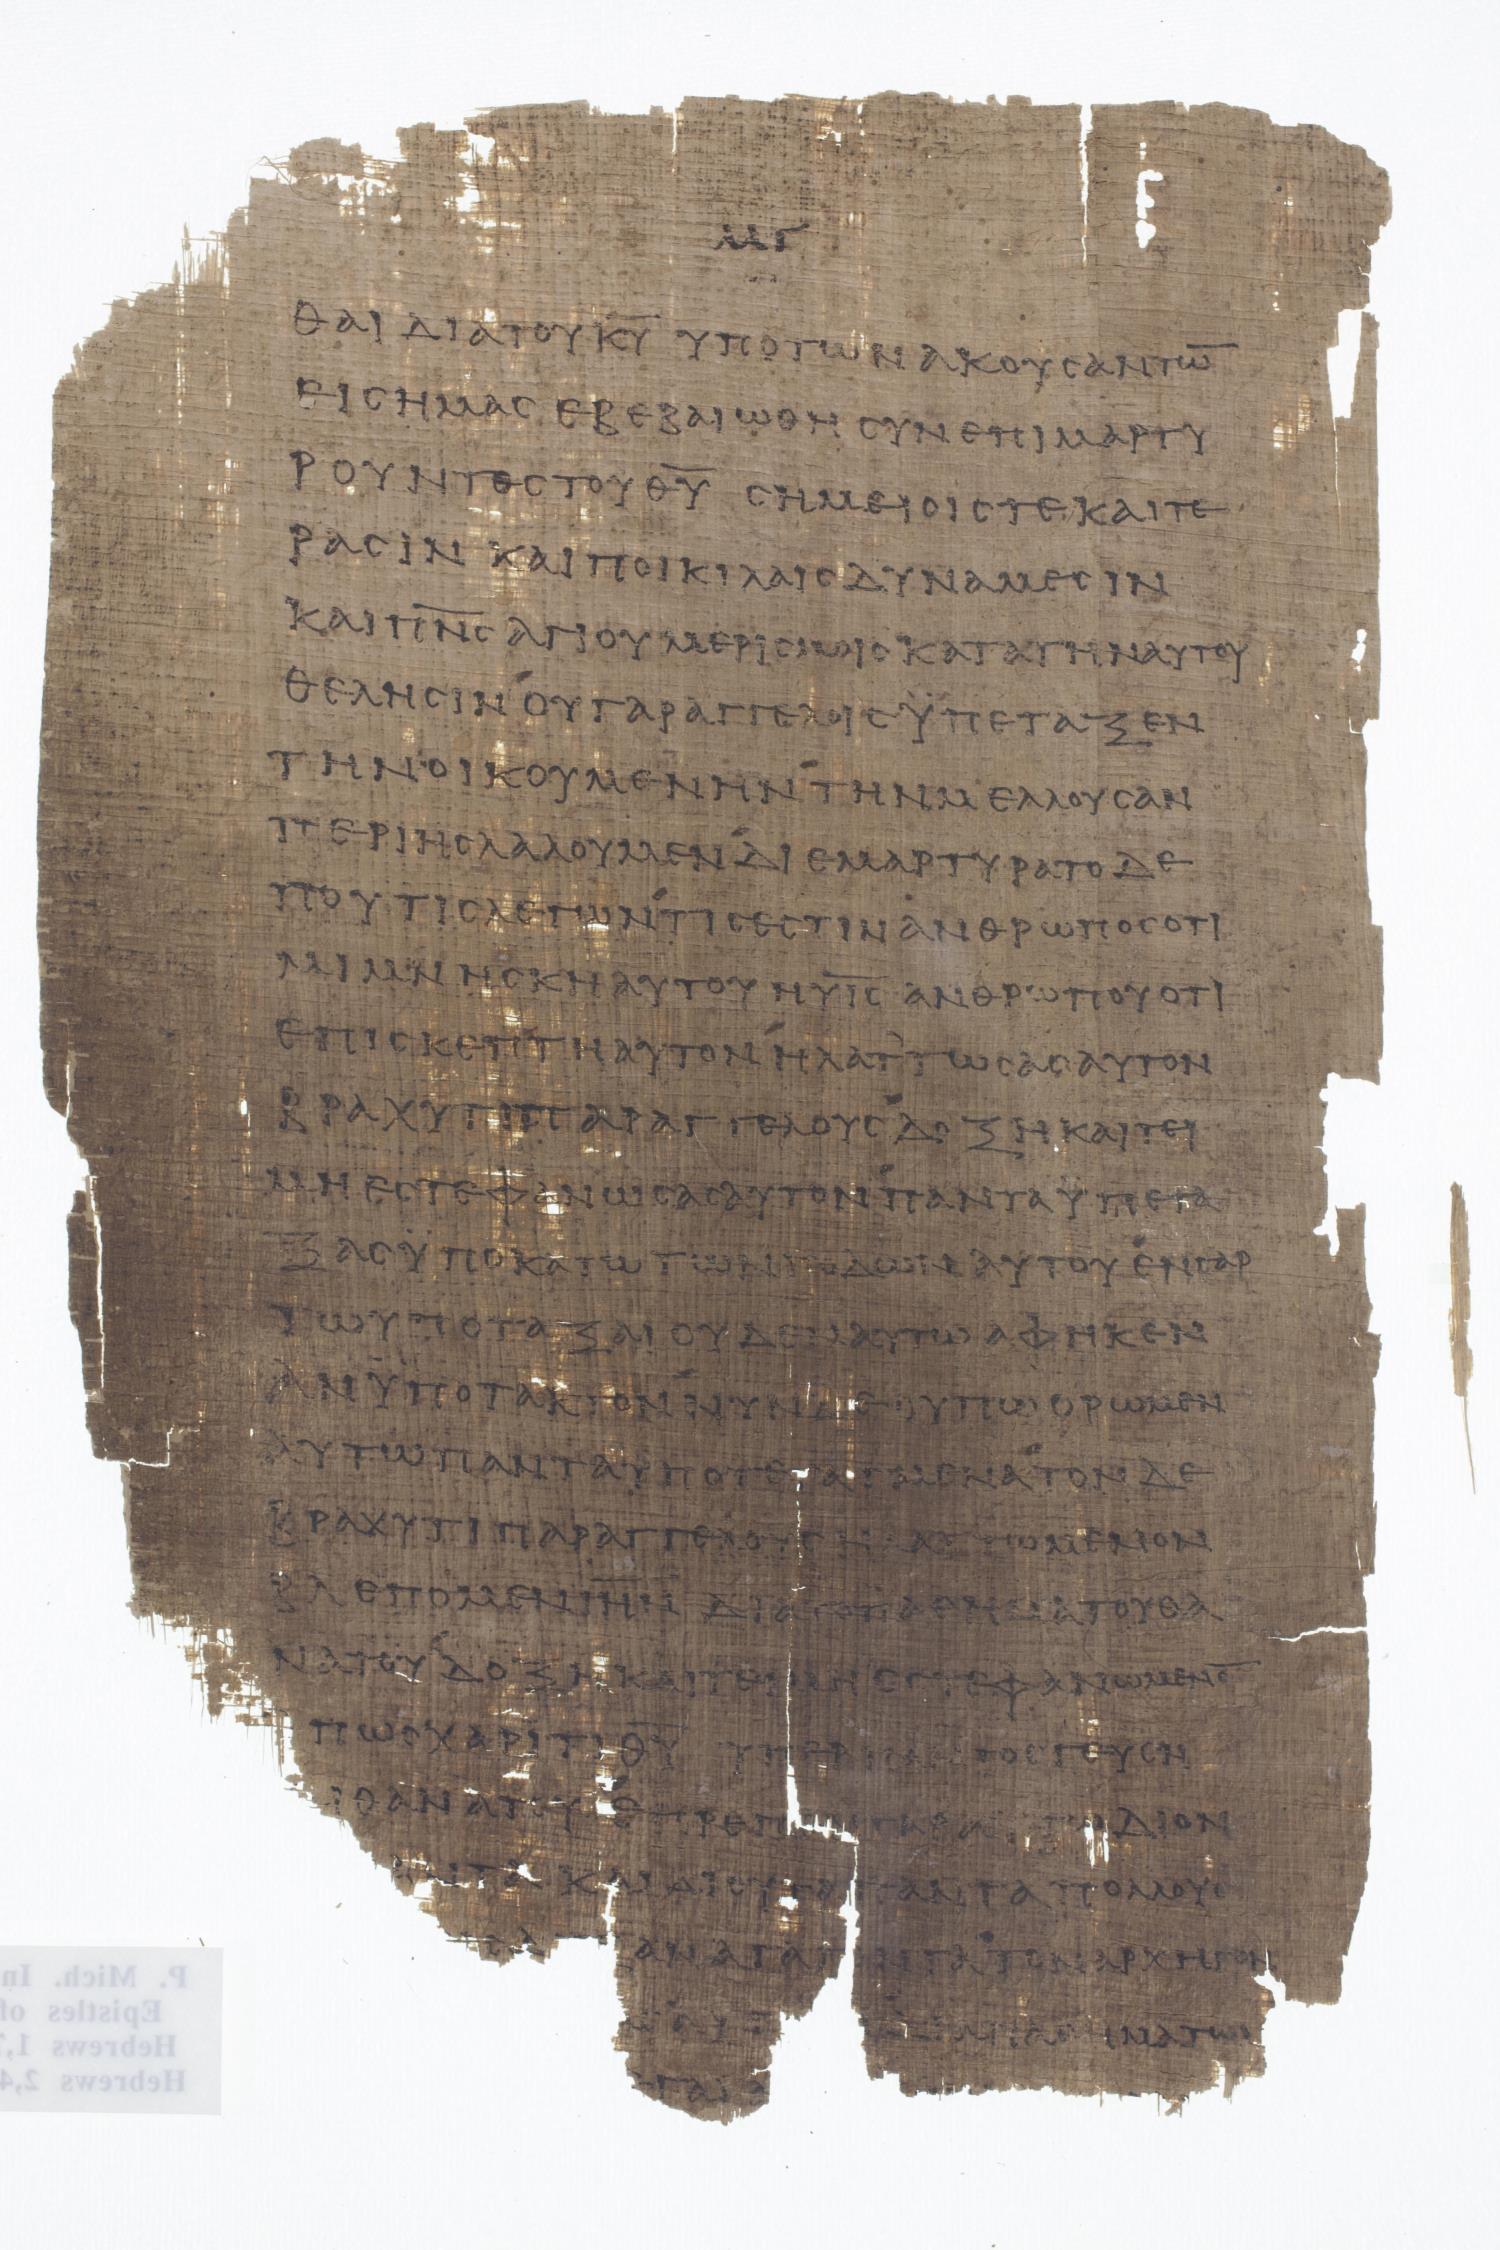 μγ
θαι δια του κ̅υ̅ υπο των ακουσαντω̅
εις ημας εβεβαιωθη συνεπιμαρτυ
ρουντες του θ̅υ̅ σημειοις τε και τε
ρασιν και ποικιλαις δυναμεσιν
και π̅ν̅ς̅ αγιου μερισμοις κατα την αυτου
θελησιν ου γαρ αγγελοις ϋπεταξεν
την οικουμενην την μελλουσαν
περι ης λαλουμεν διεμαρτυρατο δε
που τις λεγων τις εστιν ανθρωπος οτι
μιμνησκη αυτου η υ̅ι̅ς̅ ανθρωπου οτι
επισκεπτη αυτον ηλαττωσας αυτον
βραχυ τι παρ αγγελους δοξη και τει
μη εστεφανωσας αυτον παντα ϋπετα
ξας ϋποκατω των ποδων αυτου εν γαρ
τω υποταξαι ουδεν αυτω αφηκεν
ανϋποτακτον νυν δε ουπω ορωμεν
αυτω παντα υποτεταγμενα τον δε
βραχυ τι παρ αγγελους ηλαττωμενον
βλεπομεν ι̅η̅ν̅ δια το παθημα του θα
νατου δοξη και τειμη εστεφανωμενο̅
πως χαριτι θ̅υ̅ υπερ παντος γευση
ι θανατου επρεπεν γαρ αυτω δι ον
τα παντα και δι ου τα παντα πολλους
αγαγοντα τον αρχηγον
παθηματων